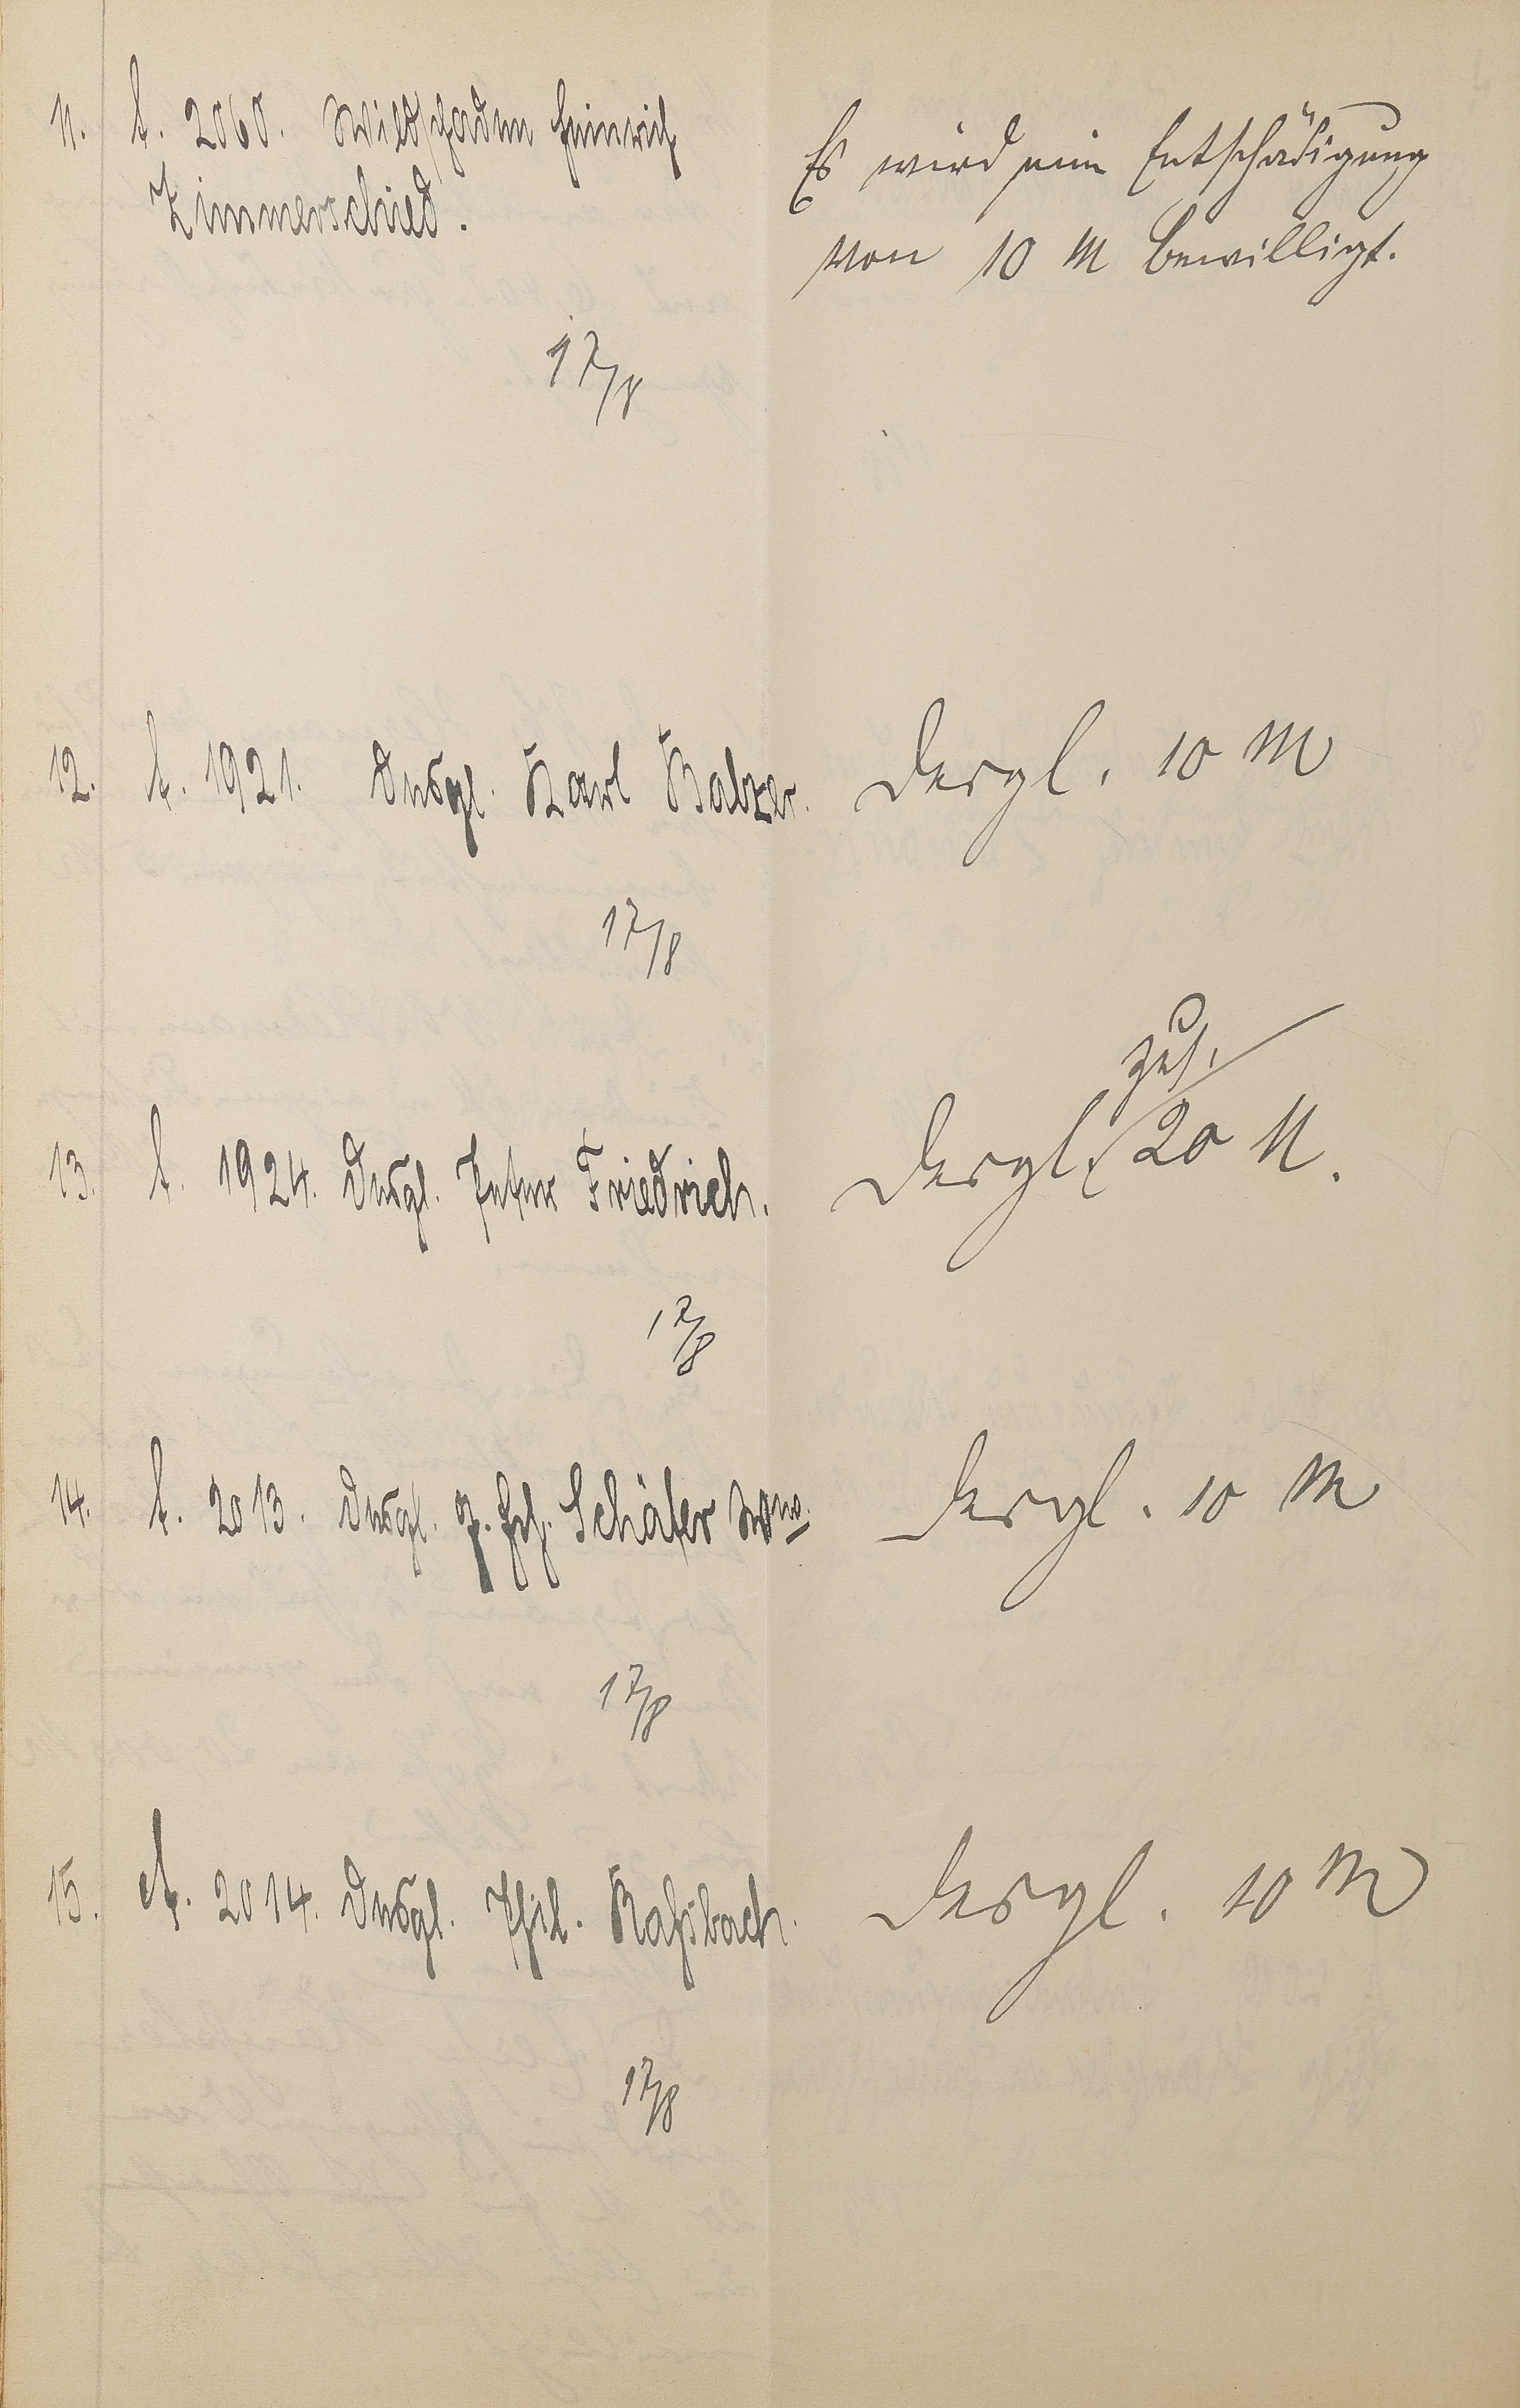 11. A. 2060. Wildschaden Heinrich
Zimmerschied.
Es wird eine Entschädigung
von 10 M bewilligt.
17/8
12. A. 1921. Desgl. Karl Balzer.
Dergl. 10 M
17/8
13. A. 1924. Desgl. Peter Friedrich.
zus.
Dergl. 20 M.
17/8
14. A. 2013. Desgl. Schäfer Wwe.
Dergl. 10 M
17/8
15. A. 2014. Desgl. Phil. Raßbach.
Dergl. 10 M
17/8